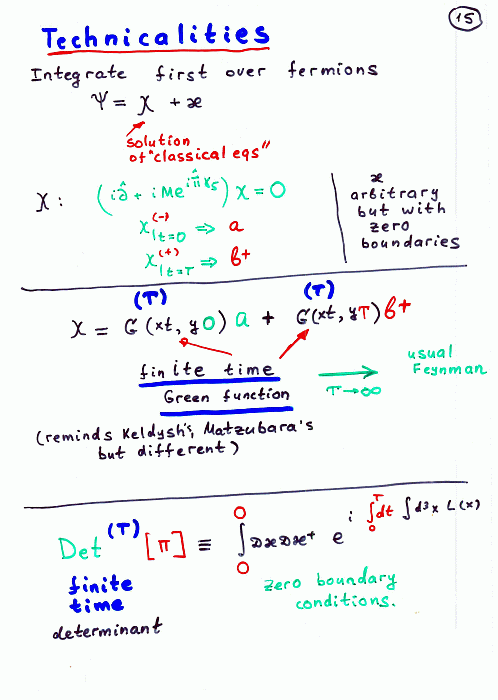 15
Technicalities
Integrate first over fermions
Ψ = χ + æ
solution
of "classical eqs"
χ : (i∂̂ + iMe^{iπ̂γ5}) χ = 0
χ^(-)|t=0 ⇒ a
χ^(+)|t=T ⇒ b+
æ
arbitrary
but with
zero
boundaries
χ = G^(T)(xt, y0) a + G^(T)(xt, yT) b+
finite time
Green function
T→∞
usual
Feynman
(reminds Keldysh's, Matzubara's
but different)
Det^(T) [π] ≡ ∫_0^0 DæDæ+ e^{i ∫_0^T dt ∫d³x L(x)}
finite
time
determinant
zero boundary
conditions.